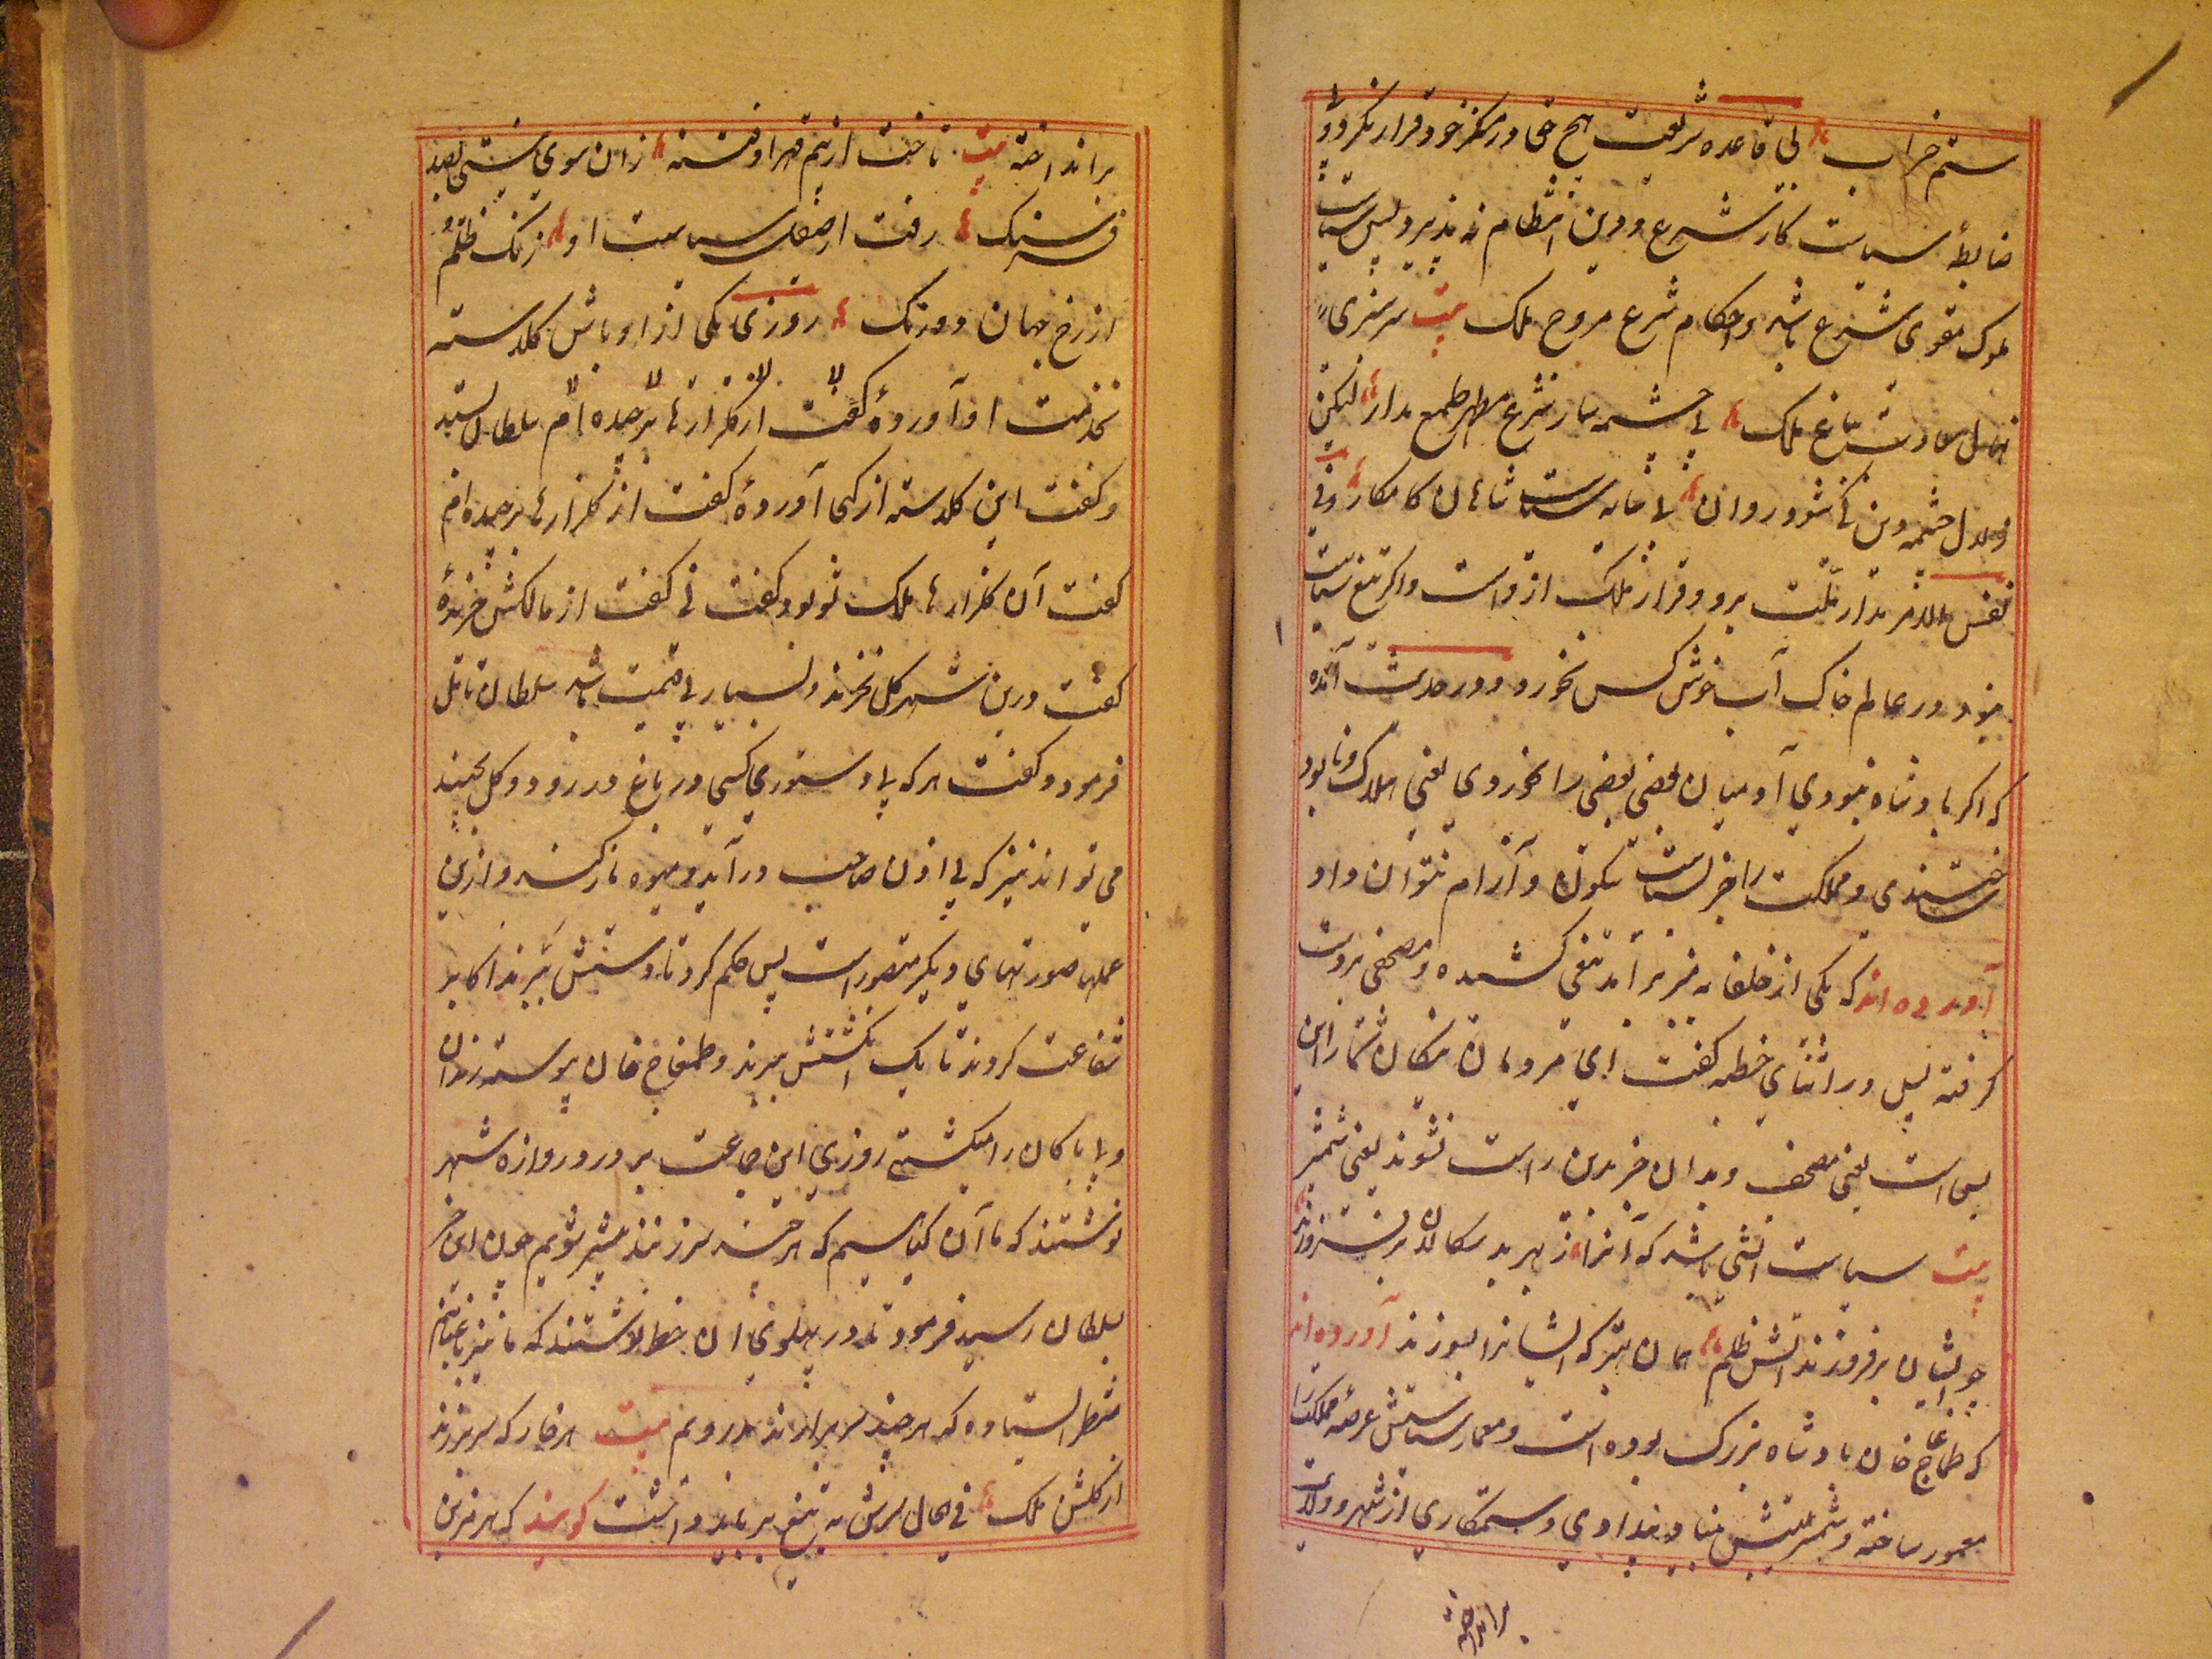 ستم خراب بی قاعده شریعت هیچ حق در مرکز خود قرار نگیرد و بی
ضابطهٔ سیاست کار شرع و دین انتظام نپذیرد پس سیاست
ملوک مقوی شرع باشد و احکام شرع مروج ملک بیت سرسبزی
نهال سعادت بباغ ملک بی چشمه سار شرع مطهر طمع مدار لیکن
زلال چشمه دین کی شود روان بی سیاست شاهان کامکار و فی
نفس الامر مدار ملت برو و قرار ملک ازوست و اگر تیغ سیاست
نبود در عالم خاک آب خوش کس نخورد و در حدیث آمده
که اگر پادشاه نبودی آدمیان بعضی بعضی را بخوردی یعنی هلاک و نابود
ساختندی و مملکت را جز بسیاست سکون و آرام نتوان داد
آورده اند که یکی از خلفا به منبر برآمد تیغی کشیده و مصحفی بدست
گرفته پس در اثنای خطبه گفت ای مردمان نیکان شما را این
بس است یعنی مصحف و بدان جز بدین راست نشوند یعنی شمشیر
بیت سیاست آتشی باشد که آنرا از بهر بد سکالان برفروزند
چو ایشان برفروزند آتش ظلم همان بهتر که ایشانرا بسوزند آورده اند
که طمغاج خان پادشاه بزرگ بوده است و معمار سیاستش عرصه مملکت را
معمور ساخته و شمشیر بنیاد بیدادی و ستمکاری از شهر و ولایت
برانداخته
برانداخته بیت تاخت از بیم قهر او فتنه زان سوی نیستی بصد
فرسنگ رفت از صیقل سیاست او زنگ ظلم
از رخ جهان دورنگ روزی یکی از اوباش گلدسته
بخدمت او آورده گفت از گلزارها برچیده ام سلطان بستد
و گفت این گلدسته از کجا آوردهٔ گفت از گلزارها برچیده ام
گفت آن گلزارها ملک تو بود گفت نی گفت از مالکش خریدهٔ
گفت درین شهر گل نخرند و بسیار بی قیمت باشد سلطان تامل
فرمود و گفت هرکه بی دستوری کسی در باغ در رود و گل بچیند
می تواند نیز که بی اذن صاحب درآید و میوه باز کند و ازین
عملها صورتهای دیگر متصورست پس حکم کرد تا دستش ببرند اکابر
شفاعت کردند تا یک انگشتش ببرند و طمغاج خان پیوسته رندان
و بی باکان را میکشت روزی این جماعت بر در دروازه شهر
نوشتند که ما آن گیاهیم که هرچند سرزنند بیشتر شویم چون این خبر
بسلطان رسید فرمود تا در پهلوی آن خط نوشتند که ما نیز باغبانیم
منتظر ایستاده که هرچند سر برآرند بدرویم بیت هر خار که سر برزند
از گلشن ملک فی الحال سرش به تیغ برباید داشت گویند که هرمز بن